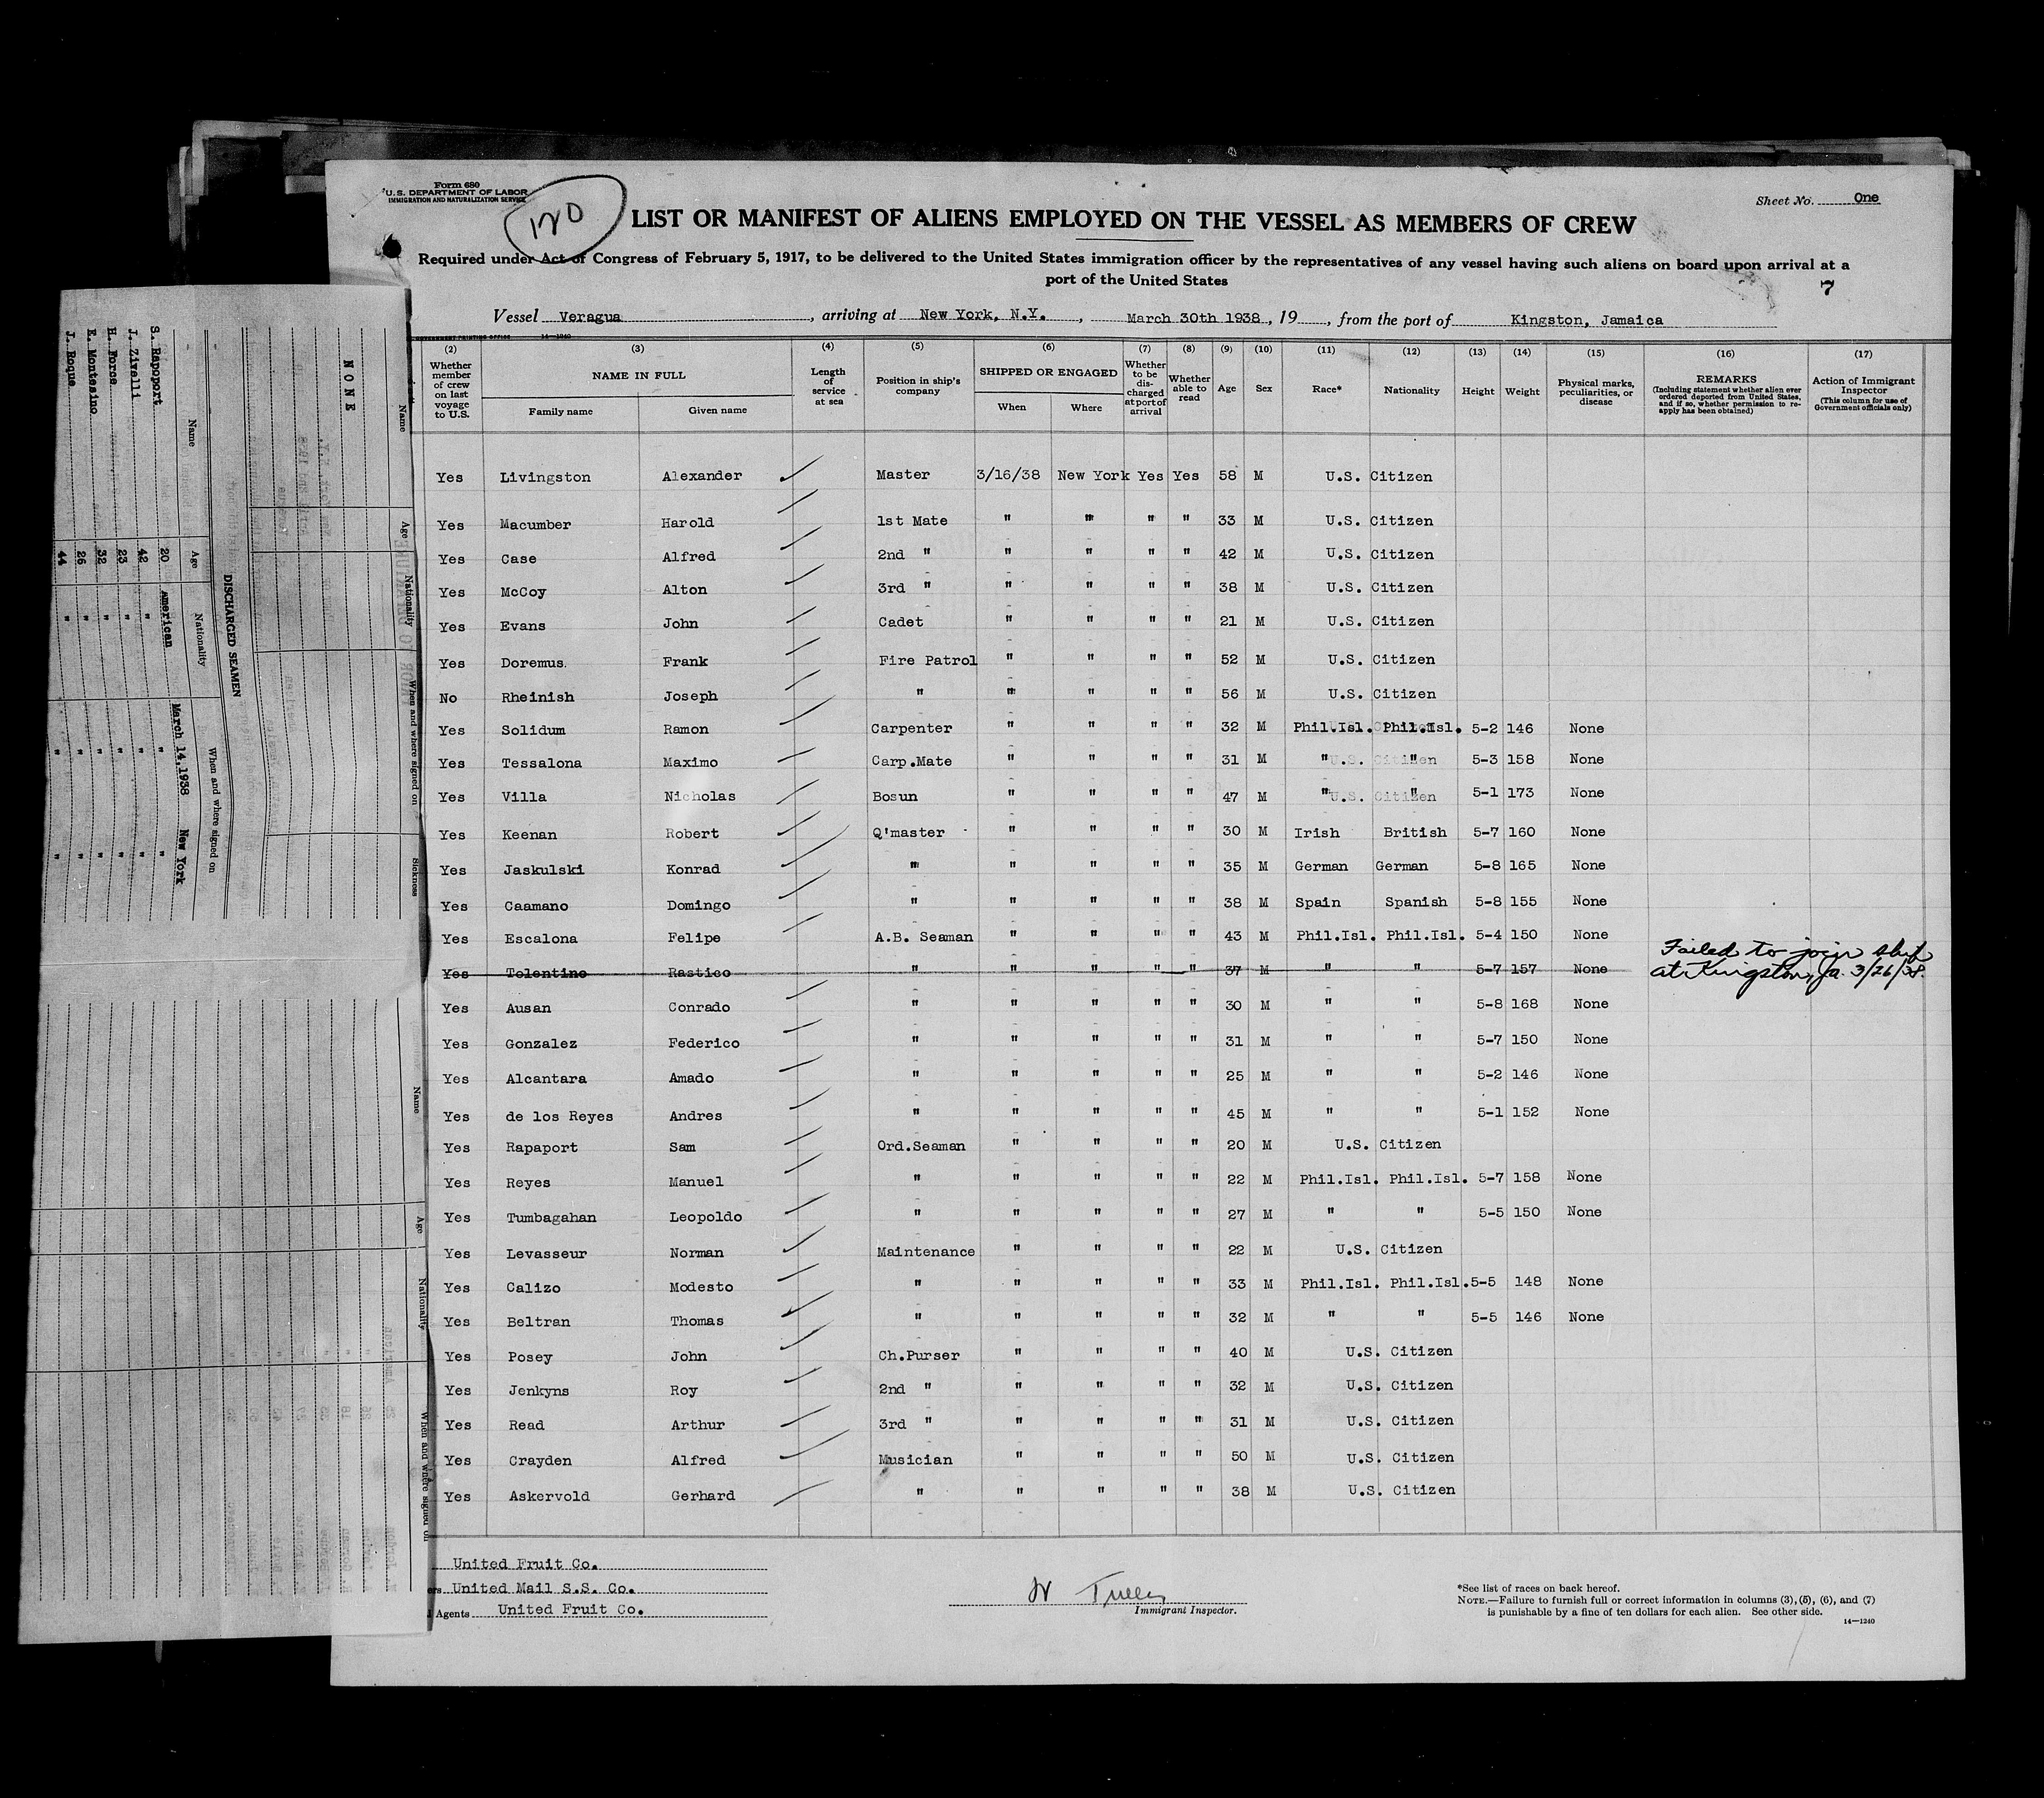 Form 680
U.S. DEPARTMENT OF LABOR
IMMIGRATION AND NATURALIZATION SERVICE
120
Sheet No. One
LIST OR MANIFEST OF ALIENS EMPLOYED ON THE VESSEL AS MEMBERS OF CREW
Required under Act of Congress of February 5, 1917, to be delivered to the United States immigration officer by the representatives of any vessel having such aliens on board upon arrival at a
port of the United States
7
Vessel Veragua, arriving at New York, N.Y., March 30th 1938, 19, from the port of Kingston, Jamaica
(2) (3) (4) (5) (6) (7) (8) (9) (10) (11) (12) (13) (14) (15) (16) (17)
Whether member of crew on last voyage to U.S.
NAME IN FULL
Family name Given name
Length of service at sea
Position in ship's company
SHIPPED OR ENGAGED
When Where
Whether to be discharged at port of arrival
Whether able to read
Age
Sex
Race*
Nationality
Height
Weight
Physical marks, peculiarities, or disease
REMARKS
(Including statement whether alien ever ordered deported from United States, and if so, whether permission to reapply has been obtained)
Action of Immigrant Inspector
(This column for use of Government officials only)
Yes Livingston Alexander Master 3/16/38 New York Yes Yes 58 M U.S. Citizen
Yes Macumber Harold 1st Mate " " " " 33 M U.S. Citizen
Yes Case Alfred 2nd " " " " " 42 M U.S. Citizen
Yes McCoy Alton 3rd " " " " " 38 M U.S. Citizen
Yes Evans John Cadet " " " " 21 M U.S. Citizen
Yes Doremus Frank Fire Patrol " " " " 52 M U.S. Citizen
No Rheinish Joseph " " " " " 56 M U.S. Citizen
Yes Solidum Ramon Carpenter " " " " 32 M Phil.Isl. Phil.Isl. 5-2 146 None
Yes Tessalona Maximo Carp.Mate " " " " 31 M " " 5-3 158 None
Yes Villa Nicholas Bosun " " " " 47 M " " 5-1 173 None
Yes Keenan Robert Q'master " " " " 30 M Irish British 5-7 160 None
Yes Jaskulski Konrad " " " " " 35 M German German 5-8 165 None
Yes Caamano Domingo " " " " " 38 M Spain Spanish 5-8 155 None
Yes Escalona Felipe A.B. Seaman " " " " 43 M Phil.Isl. Phil.Isl. 5-4 150 None
Yes Tolentino Rastico " " " " " 37 M " " 5-7 157 None Failed to join ship
at Kingston, Ja. 3/26/38.
Yes Ausan Conrado " " " " " 30 M " " 5-8 168 None
Yes Gonzalez Federico " " " " " 31 M " " 5-7 150 None
Yes Alcantara Amado " " " " " 25 M " " 5-2 146 None
Yes de los Reyes Andres " " " " " 45 M " " 5-1 152 None
Yes Rapaport Sam Ord.Seaman " " " " 20 M U.S. Citizen
Yes Reyes Manuel " " " " " 22 M Phil.Isl. Phil.Isl. 5-7 158 None
Yes Tumbagahan Leopoldo " " " " " 27 M " " 5-5 150 None
Yes Levasseur Norman Maintenance " " " " 22 M U.S. Citizen
Yes Calizo Modesto " " " " " 33 M Phil.Isl. Phil.Isl. 5-5 148 None
Yes Beltran Thomas " " " " " 32 M " " 5-5 146 None
Yes Posey John Ch.Purser " " " " 40 M U.S. Citizen
Yes Jenkyns Roy 2nd " " " " " 32 M U.S. Citizen
Yes Read Arthur 3rd " " " " " 31 M U.S. Citizen
Yes Crayden Alfred Musician " " " " 50 M U.S. Citizen
Yes Askervold Gerhard " " " " " 38 M U.S. Citizen
United Fruit Co.
United Mail S.S. Co.
Agents United Fruit Co.
Immigrant Inspector.
*See list of races on back hereof.
NOTE.—Failure to furnish full or correct information in columns (3), (5), (6), and (7)
is punishable by a fine of ten dollars for each alien. See other side.
14—1240
Name Age Nationality When and where signed on Sickness
NONE
DISCHARGED SEAMEN
Name Age Nationality When and where signed on
S. Rapoport 20 American March 14, 1938 New York
I. Zivelli 42 " " "
H. Force 23 " " "
E. Montesino 32 " " "
J. Roque 26 " " "
44 " " "
Name Age Nationality When and where signed on